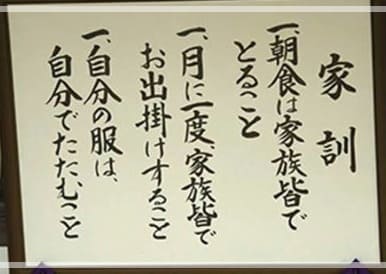 家訓
一、朝食は家族皆で
とること
一、月に一度、家族皆で
お出掛けすること
一、自分の服は、
自分でたたむこと